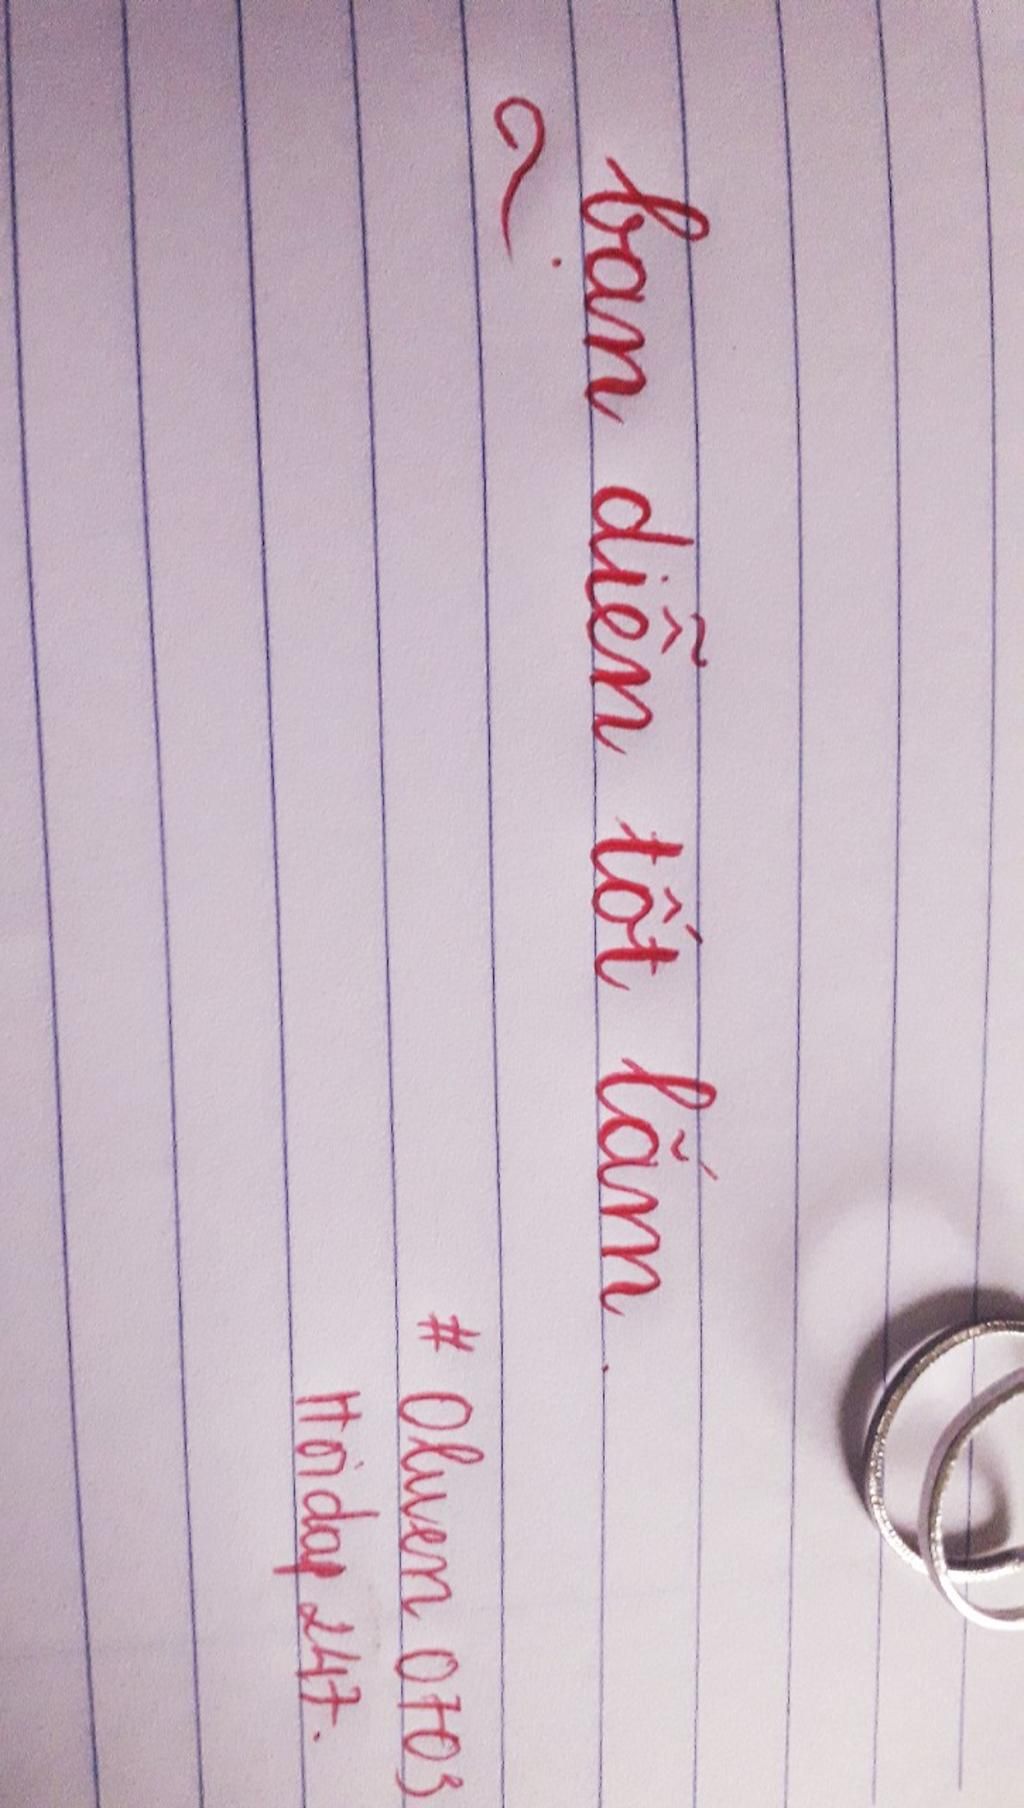 bạn diễn tốt lắm.
# Olwen 0703
Hoidap 247.